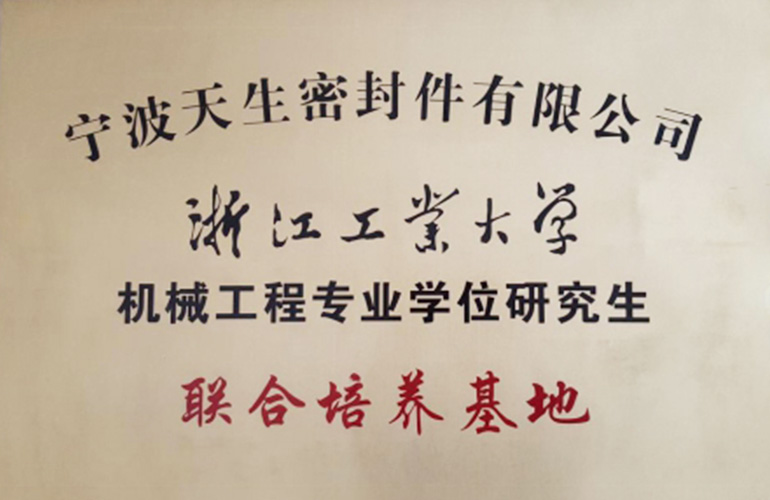 宁波天生密封件有限公司
浙江工業大学
机械工程专业学位研究生
联合培养基地